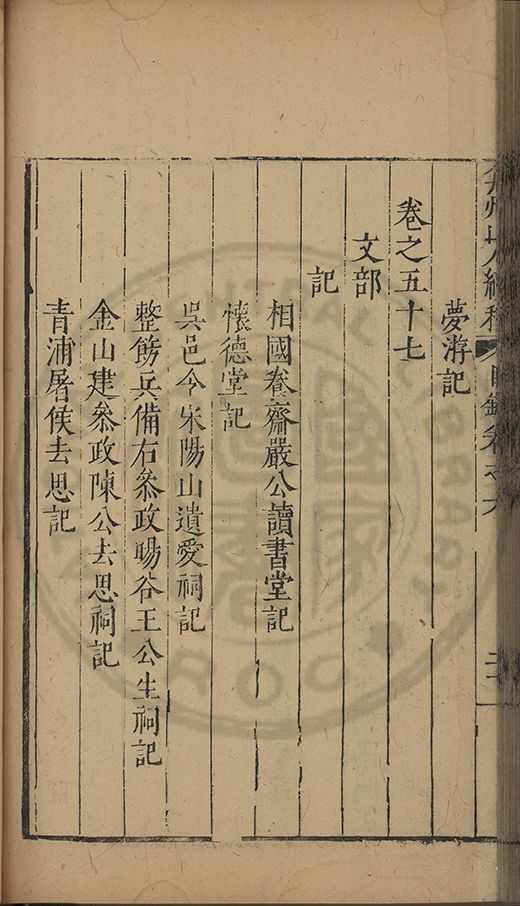 弇州山人續稿 目錄卷之六
夢游記
卷之五十七
文部
記
相國養齋嚴公讀書堂記
懷德堂記
吳邑令宋陽山遺愛祠記
整飭兵備右叅政暘谷王公生祠記
金山建叅政陳公去思祠記
青浦屠侯去思記